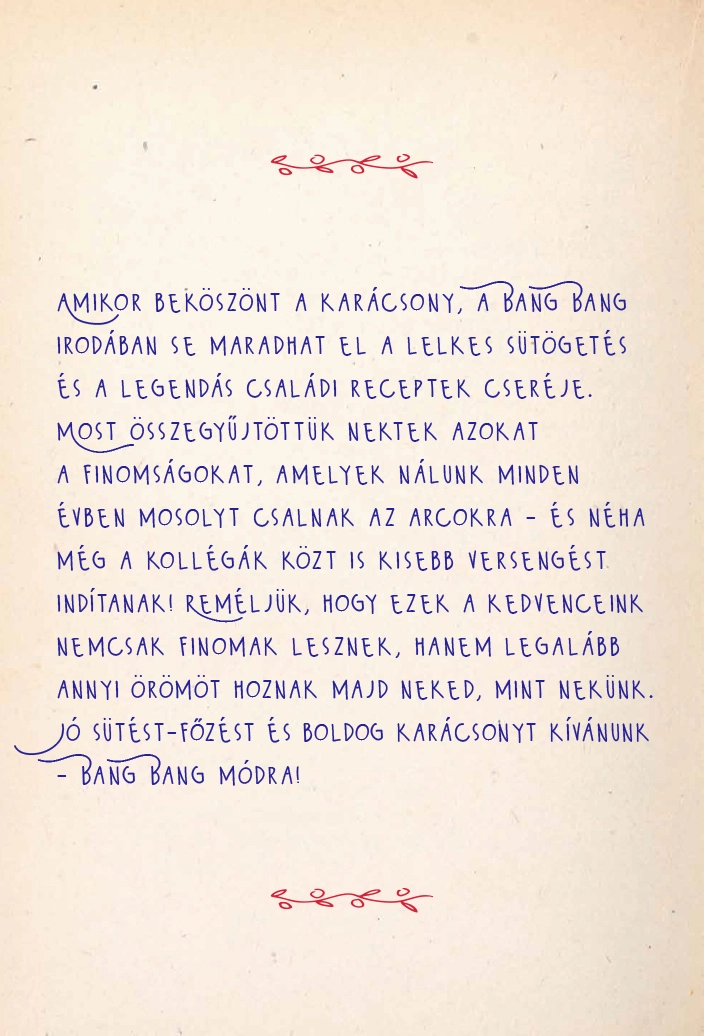 AMIKOR BEKÖSZÖNT A KARÁCSONY, A BANG BANG
IRODÁBAN SE MARADHAT EL A LELKES SÜTÖGETÉS
ÉS A LEGENDÁS CSALÁDI RECEPTEK CSERÉJE.
MOST ÖSSZEGYŰJTÖTTÜK NEKTEK AZOKAT
A FINOMSÁGOKAT, AMELYEK NÁLUNK MINDEN
ÉVBEN MOSOLYT CSALNAK AZ ARCOKRA – ÉS NÉHA
MÉG A KOLLÉGÁK KÖZT IS KISEBB VERSENGÉST
INDÍTANAK! REMÉLJÜK, HOGY EZEK A KEDVENCEINK
NEMCSAK FINOMAK LESZNEK, HANEM LEGALÁBB
ANNYI ÖRÖMÖT HOZNAK MAJD NEKED, MINT NEKÜNK.
JÓ SÜTÉST-FŐZÉST ÉS BOLDOG KARÁCSONYT KÍVÁNUNK
– BANG BANG MÓDRA!